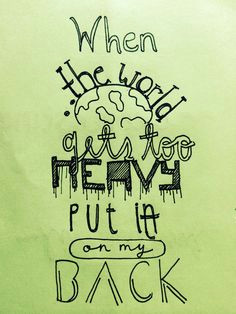 When
the world
gets too
HEAVY
PUT it
on my
BACK